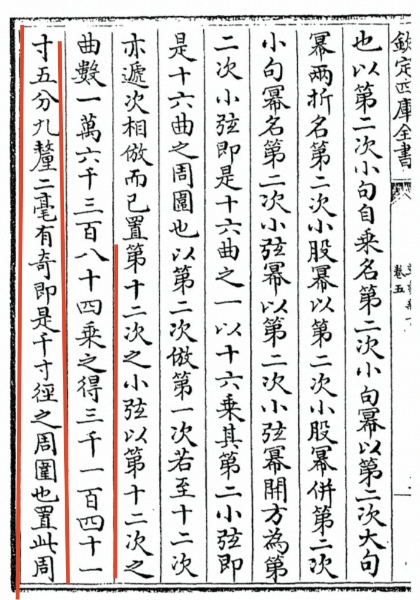 欽定四庫全書
卷五
也以第二次小句自乗名第二次小句冪以第二次大句
冪兩折名第二次小股冪以第二次小股冪併第二次
小句冪名第二次小弦冪以第二次小弦冪開方為第
二次小弦即是十六曲之一以十六乗其第二小弦即
是十六曲之周圍也以第二次倣第一次若至十二次
亦遞次相倣而已置第十二次之小弦以第十二次之
曲數一萬六千三百八十四乗之得三千一百四十一
寸五分九釐二毫有奇即是千寸徑之周圍也置此周